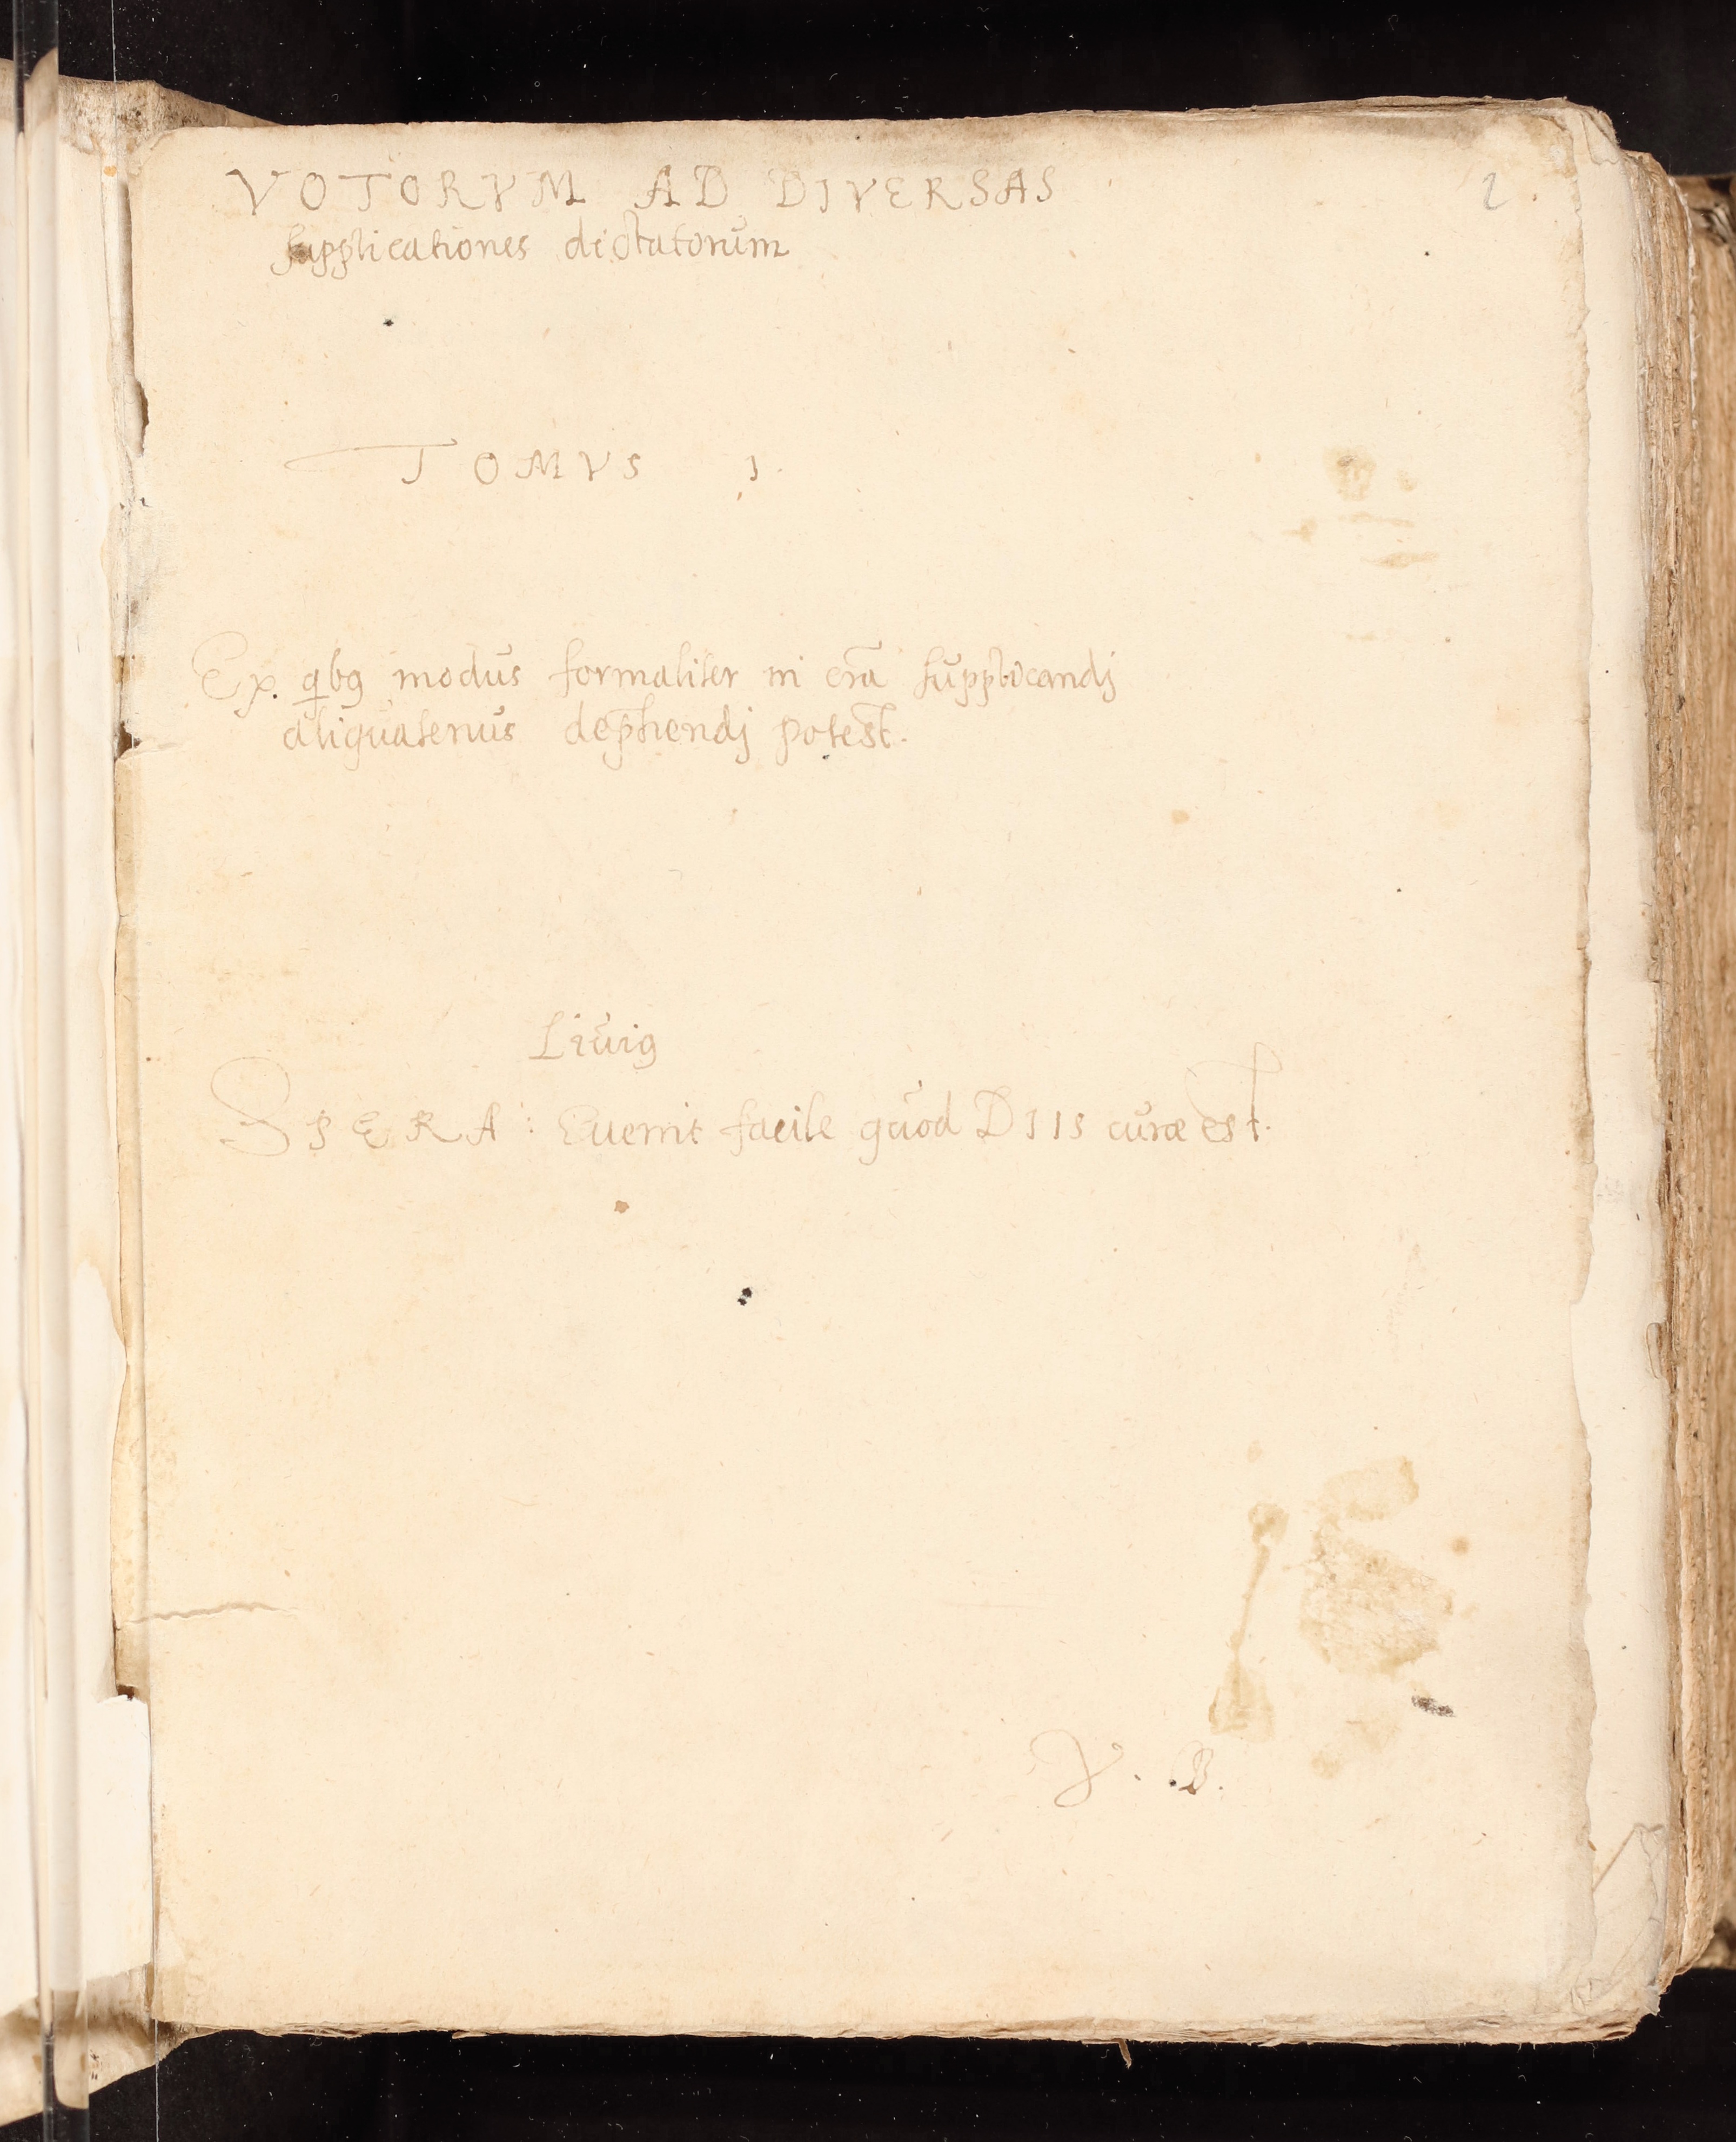 VOTORVM AD DIVERSAS
supplicationes dictatorum
TOMVS 1.
Ex qbꝰ modus formaliter in cra supplicandj
aliquatenus dep̄hendj potest.
Liviꝰ
SPERA: Evenit facile quod DIIS curæ est.
V. B.